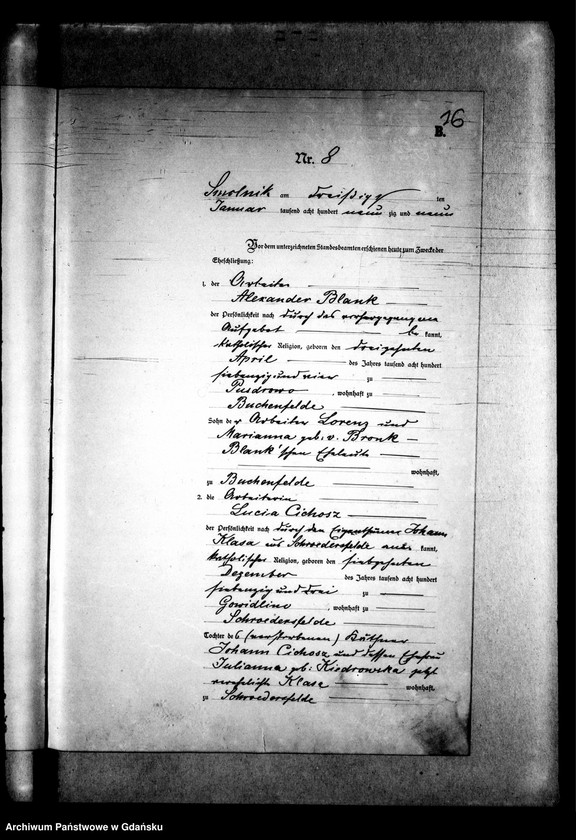 16
B.
Nr. 8
Smolnik am dreißigsten
Januar tausend acht hundert neunzig und neun
Vor dem unterzeichneten Standesbeamten erschienen heute zum Zwecke der
Eheschließung:
1. der Arbeiter
Alexander Blank
der Persönlichkeit nach durch das vorhergegangene
Aufgebot bekannt,
katholischer Religion, geboren den dreizehnten
April des Jahres tausend acht hundert
siebenzig und vier zu
Pusdrowo, wohnhaft zu
Buchenfelde
Sohn der Arbeiter Lorenz und
Marianna geb: v. Bronk
Blank'schen Eheleute
wohnhaft,
zu Buchenfelde
2. die Arbeiterin
Lucia Cichosz
der Persönlichkeit nach durch den Eigenthümer Johann
Klasa aus Schroedersfelde aner kannt,
katholischer Religion, geboren den siebzehnten
Dezember des Jahres tausend acht hundert
siebenzig und drei zu
Gowidlino, wohnhaft zu
Schroedersfelde
Tochter des (verstorbenen) Käthner
Johann Cichosz und dessen Ehefrau
Julianna geb: Kiedrowska jetzt
verehelichte Klasa wohnhaft,
zu Schroedersfelde
Archiwum Państwowe w Gdańsku